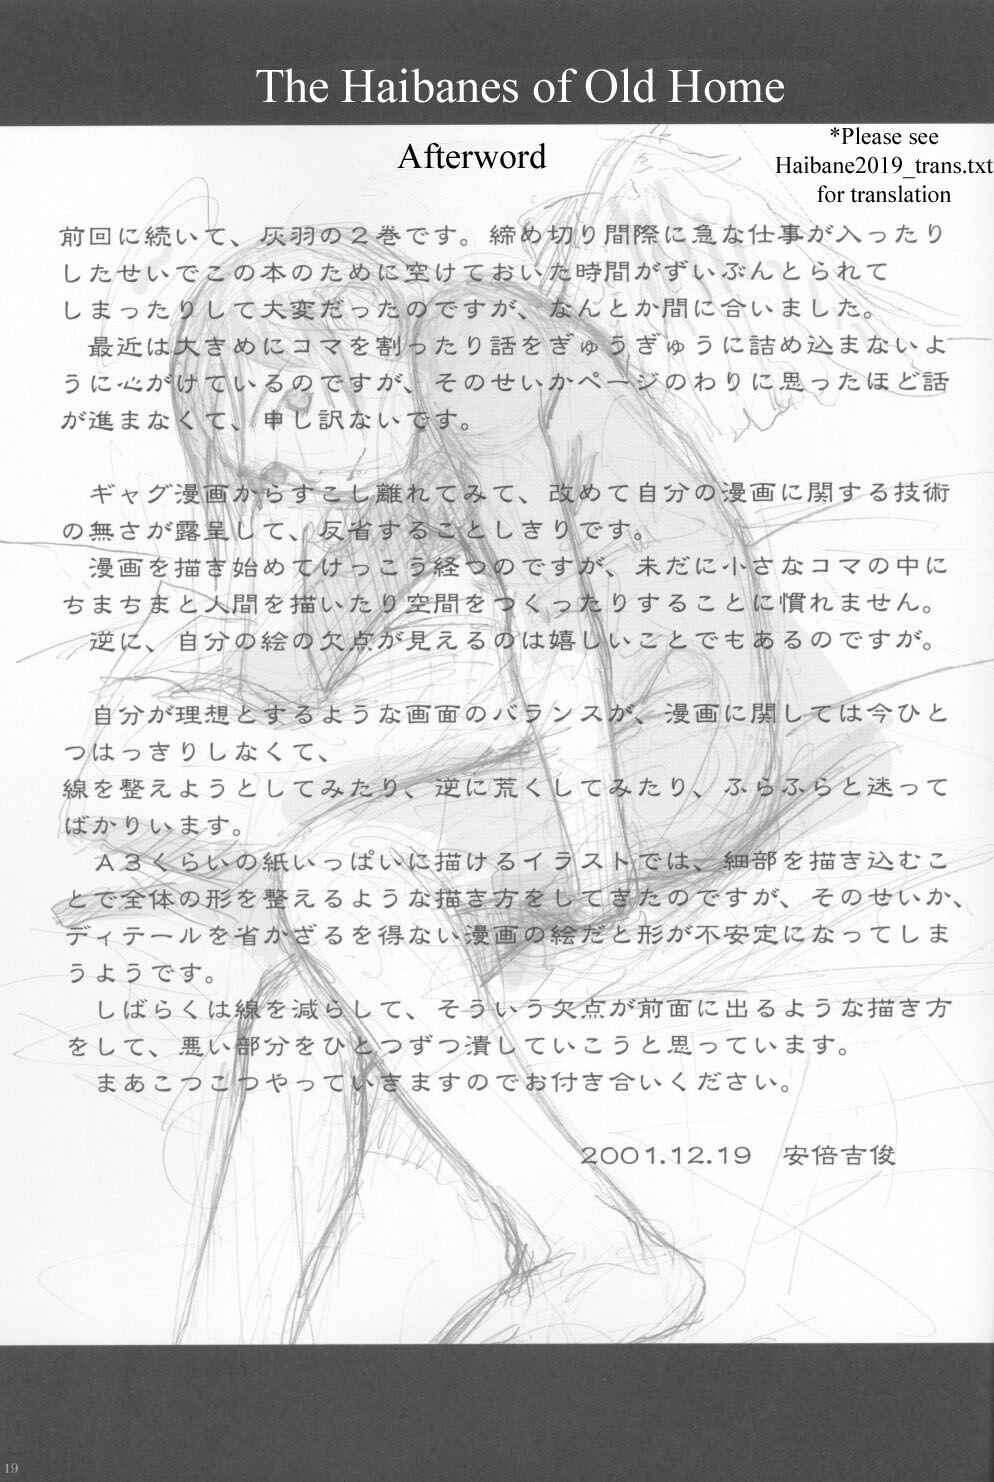 The Haibanes of Old Home
Afterword
*Please see
Haibane2019_trans.txt
for translation
前回に続いて、灰羽の２巻です。締め切り間際に急な仕事が入ったり
したせいでこの本のために空けておいた時間がずいぶんとられて
しまったりして大変だったのですが、なんとか間に合いました。
最近は大きめにコマを割ったり話をぎゅうぎゅうに詰め込まないよ
うに心がけているのですが、そのせいかページのわりに思ったほど話
が進まなくて、申し訳ないです。
ギャグ漫画からすこし離れてみて、改めて自分の漫画に関する技術
の無さが露呈して、反省することしきりです。
漫画を描き始めてけっこう経つのですが、未だに小さなコマの中に
ちまちまと人間を描いたり空間をつくったりすることに慣れません。
逆に、自分の絵の欠点が見えるのは嬉しいことでもあるのですが。
自分が理想とするような画面のバランスが、漫画に関しては今ひと
つはっきりしなくて、
線を整えようとしてみたり、逆に荒くしてみたり、ふらふらと迷って
ばかりいます。
Ａ３くらいの紙いっぱいに描けるイラストでは、細部を描き込むこ
とで全体の形を整えるような描き方をしてきたのですが、そのせいか、
ディテールを省かざるを得ない漫画の絵だと形が不安定になってしま
うようです。
しばらくは線を減らして、そういう欠点が前面に出るような描き方
をして、悪い部分をひとつずつ潰していこうと思っています。
まあこつこつやっていきますのでお付き合いください。
2001.12.19　安倍吉俊
19